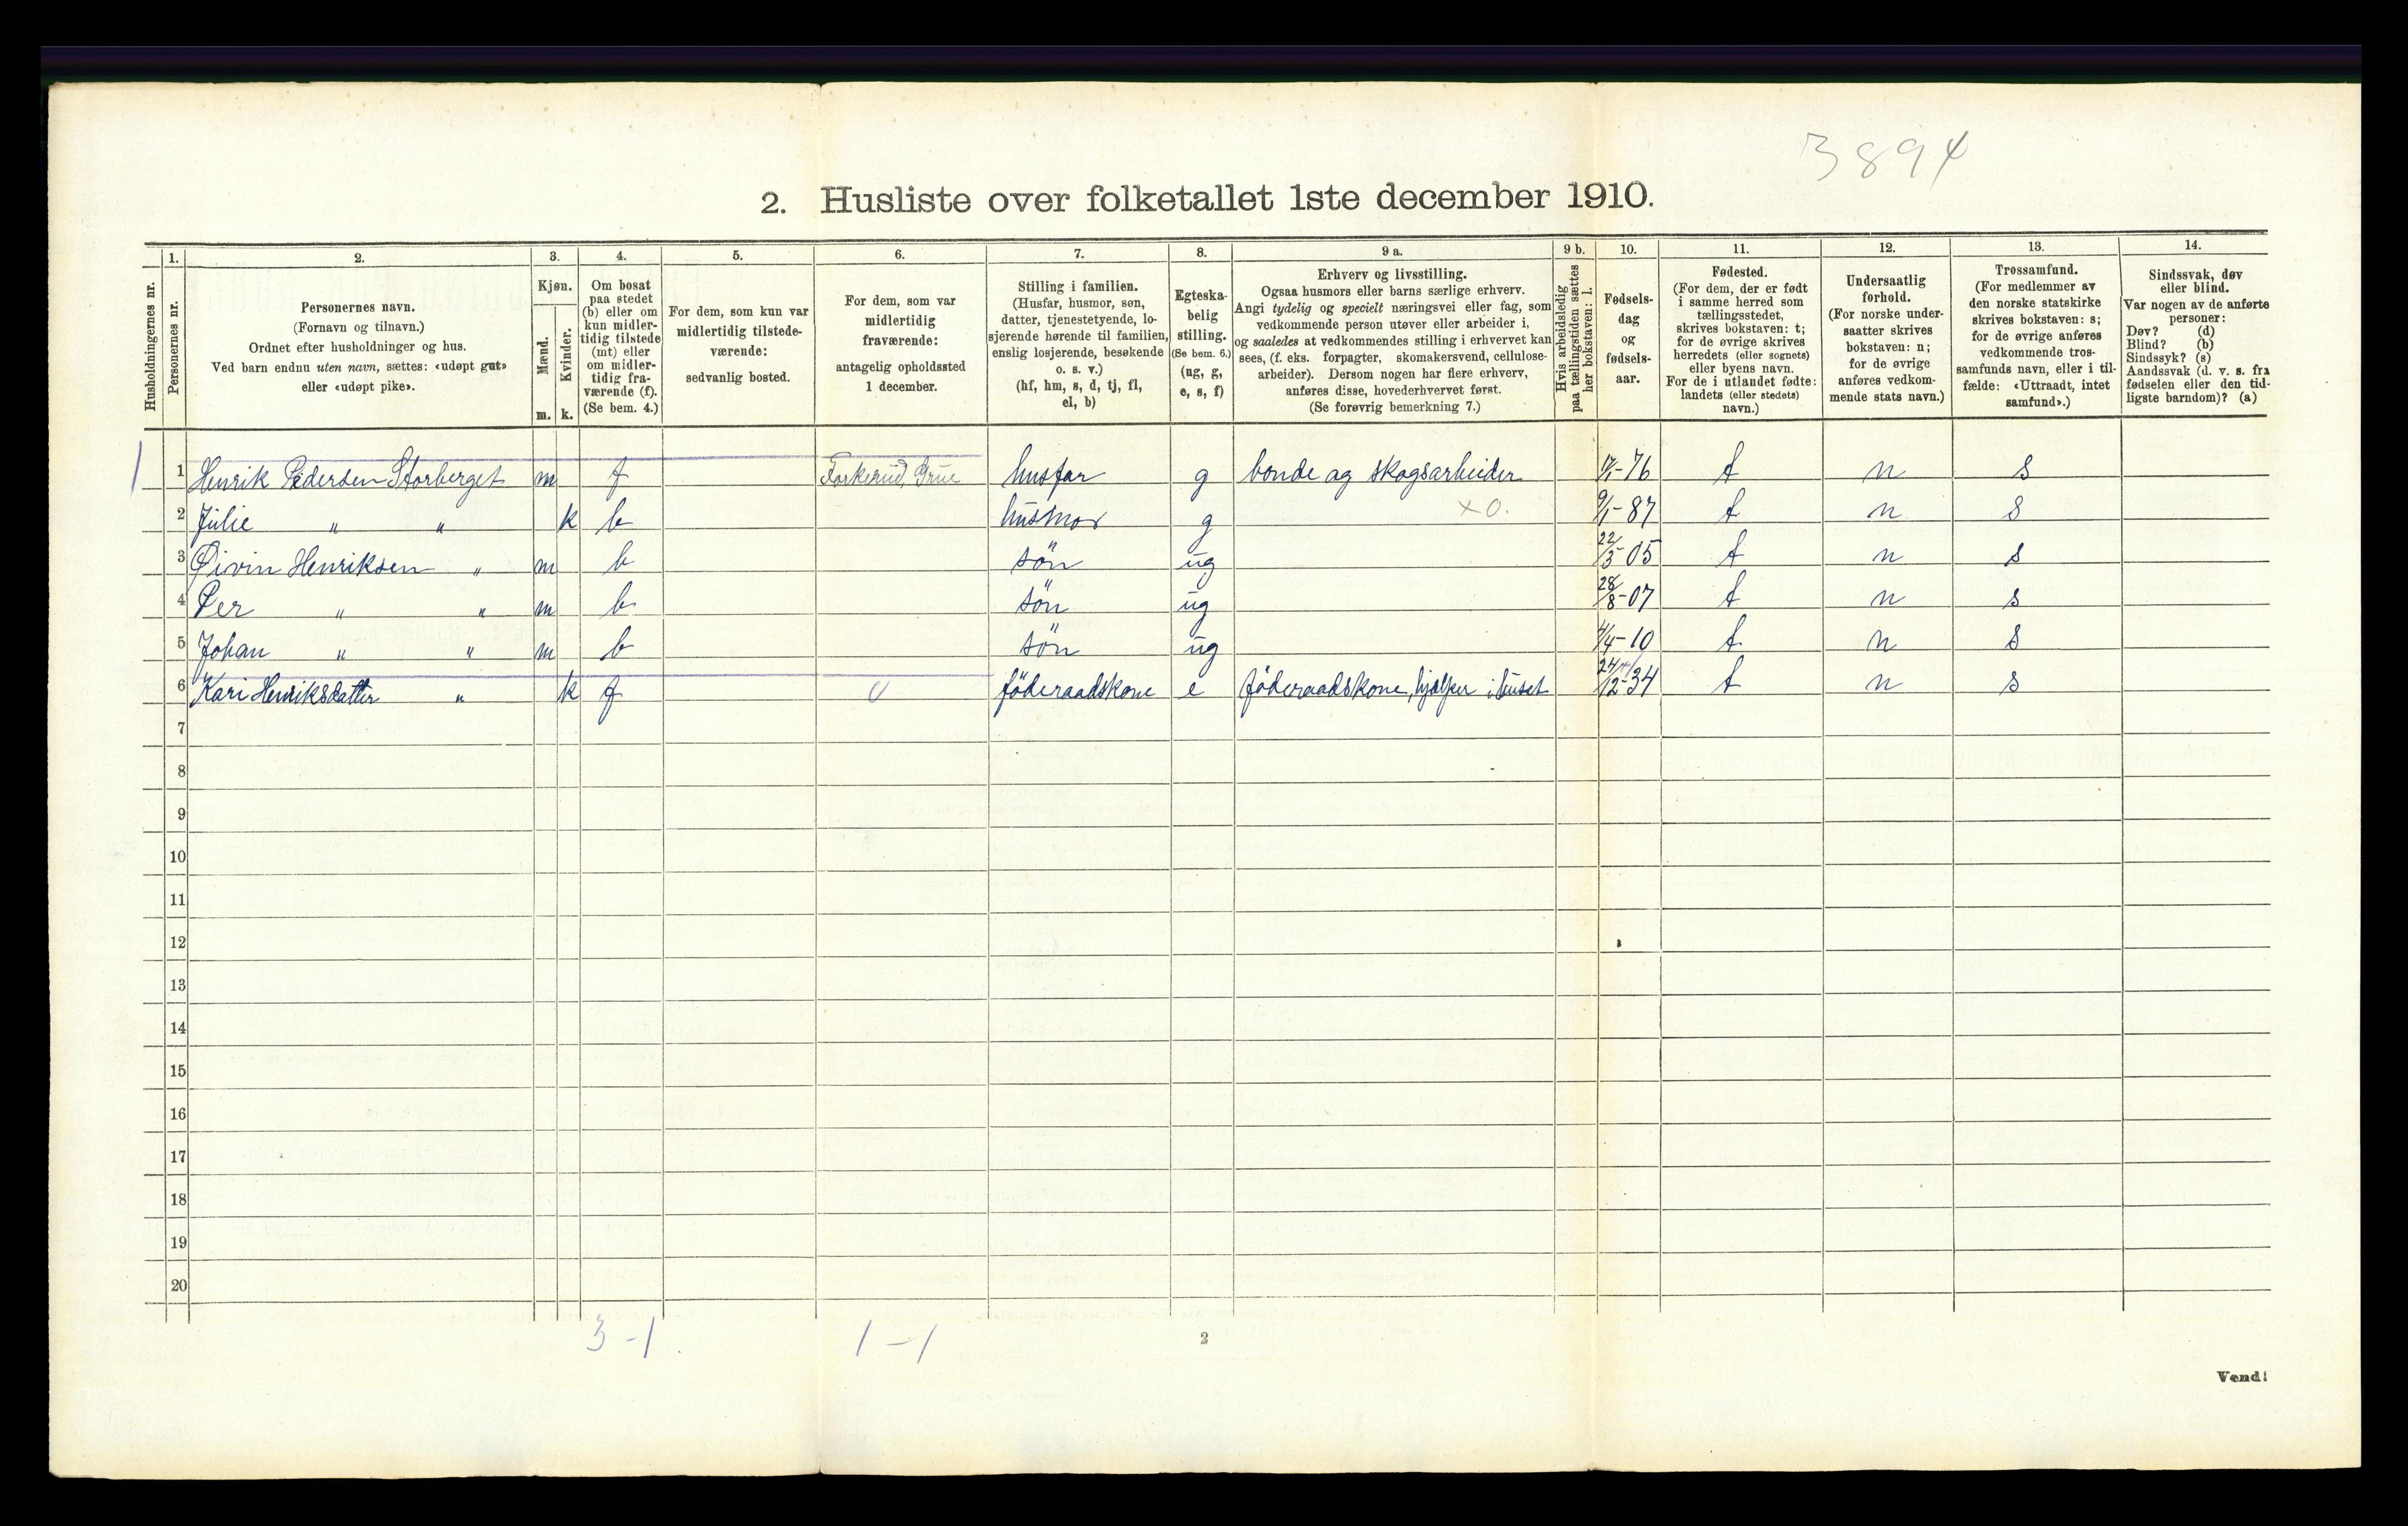 3894
2. Husliste over folketallet 1ste december 1910.
Husholdningernes nr.
1. Personernes nr.
2. Personernes navn. (Fornavn og tilnavn.) Ordnet efter husholdninger og hus. Ved barn endnu uten navn, sættes: «udøpt gut» eller «udøpt pike».
3. Kjøn. Mænd. m. Kvinder. k.
4. Om bosat paa stedet (b) eller om kun midlertidig tilstede (mt) eller om midlertidig fraværende (f). (Se bem. 4.)
5. For dem, som kun var midlertidig tilstedeværende: sedvanlig bosted.
6. For dem, som var midlertidig fraværende: antagelig opholdssted 1 december.
7. Stilling i familien. (Husfar, husmor, søn, datter, tjenestetyende, losjerende hørende til familien, enslig losjerende, besøkende o. s. v.) (hf, hm, s, d, tj, fl, el, b)
8. Egteskabelig stilling. (Se bem. 6.) (ug, g, e, s, f)
9 a. Erhverv og livsstilling. Ogsaa husmors eller barns særlige erhverv. Angi tydelig og specielt næringsvei eller fag, som vedkommende person utøver eller arbeider i, og saaledes at vedkommendes stilling i erhvervet kan sees, (f. eks. forpagter, skomakersvend, cellulosearbeider). Dersom nogen har flere erhverv, anføres disse, hovederhvervet først. (Se forøvrig bemerkning 7.)
9 b. Hvis arbeidsledig paa tællingstiden sættes her bokstaven: l.
10. Fødselsdag og fødselsaar.
11. Fødested. (For dem, der er født i samme herred som tællingsstedet, skrives bokstaven: t; for de øvrige skrives herredets (eller sognets) eller byens navn. For de i utlandet fødte: landets (eller stedets) navn.)
12. Undersaatlig forhold. (For norske undersaatter skrives bokstaven: n; for de øvrige anføres vedkommende stats navn.)
13. Trossamfund. (For medlemmer av den norske statskirke skrives bokstaven: s; for de øvrige anføres vedkommende trossamfunds navn, eller i tilfælde: «Uttraadt, intet samfund».)
14. Sindssvak, døv eller blind. Var nogen av de anførte personer: Døv? (d) Blind? (b) Sindssyk? (s) Aandssvak (d. v. s. fra fødselen eller den tidligste barndom)? (a)
1 1 Henrik Pedersen Storberget m f Forkerud, Grue husfar g bonde og skogsarbeider -76 t n s
2 Julie " " k b husmor g x 0. 9/1-87 t n s
3 Øivin Henriksen " m b søn ug 22/5 05 t n s
4 Per " " m b søn ug 28/8-07 t n s
5 Johan " " m b søn ug 4/4-10 t n s
6 Kari Henriksdatter " k f 0 föderaadskone e föderaadskone, hjælper i huset 24/12-34 t n s
7
8
9
10
11
12
13
14
15
16
17
18
19
20
3-1. 1-1
2
Vend!